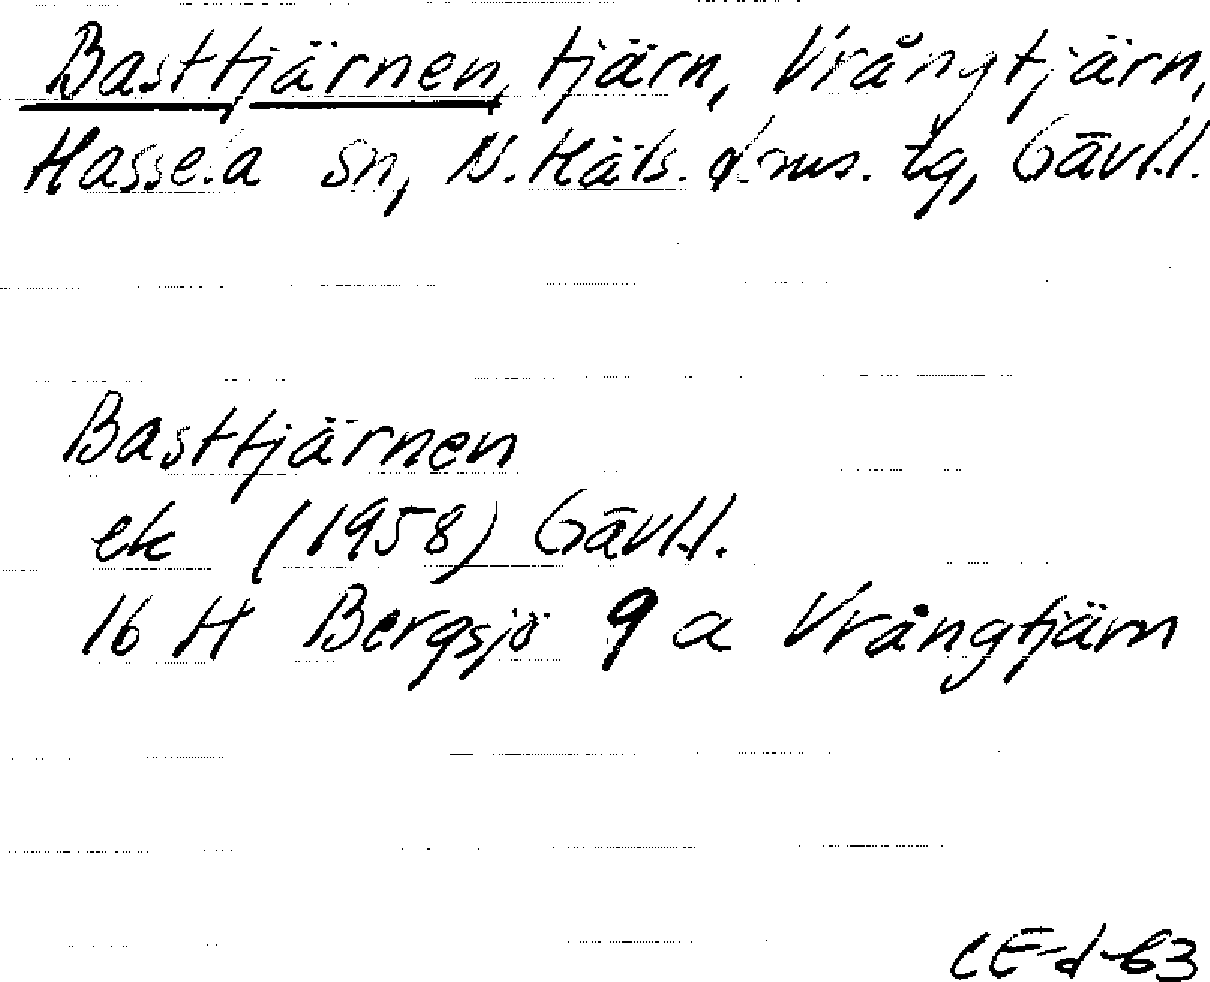 Basttjärnen, tjärn, Vrångtjärn,
Hassela sn, N. Häls. dms. tg, Gävl.l.
Basttjärnen
ek (1958) Gävl.l.
16 H Bergsjö 9 a Vrångtjärn